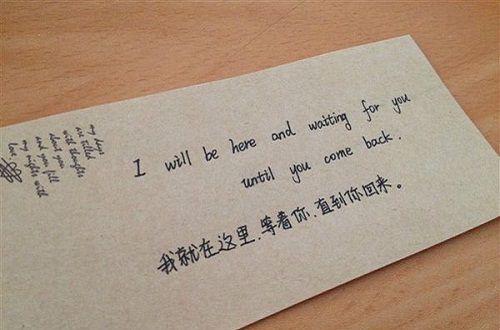 my days
are filled
with thoughts
about you
and you fill
my nights with
I will be here and waiting for you
until you come back.
我就在这里,等着你,直到你回来。